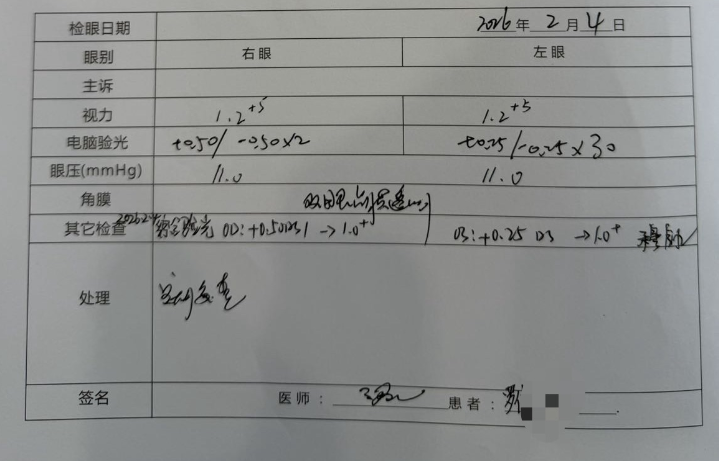 检眼日期 2026年2月4日
眼别 右眼 左眼
主诉
视力 1.2⁺⁵ 1.2⁺⁵
电脑验光 +0.50/-0.50×2 +0.25/-0.25×30
眼压(mmHg) 11.0 11.0
角膜 双眼
其它检查 验光 OD:+0.50DS → 1.0⁺ OS:+0.25 DS → 1.0⁺
处理 定期复查
签名 医师: 患者: